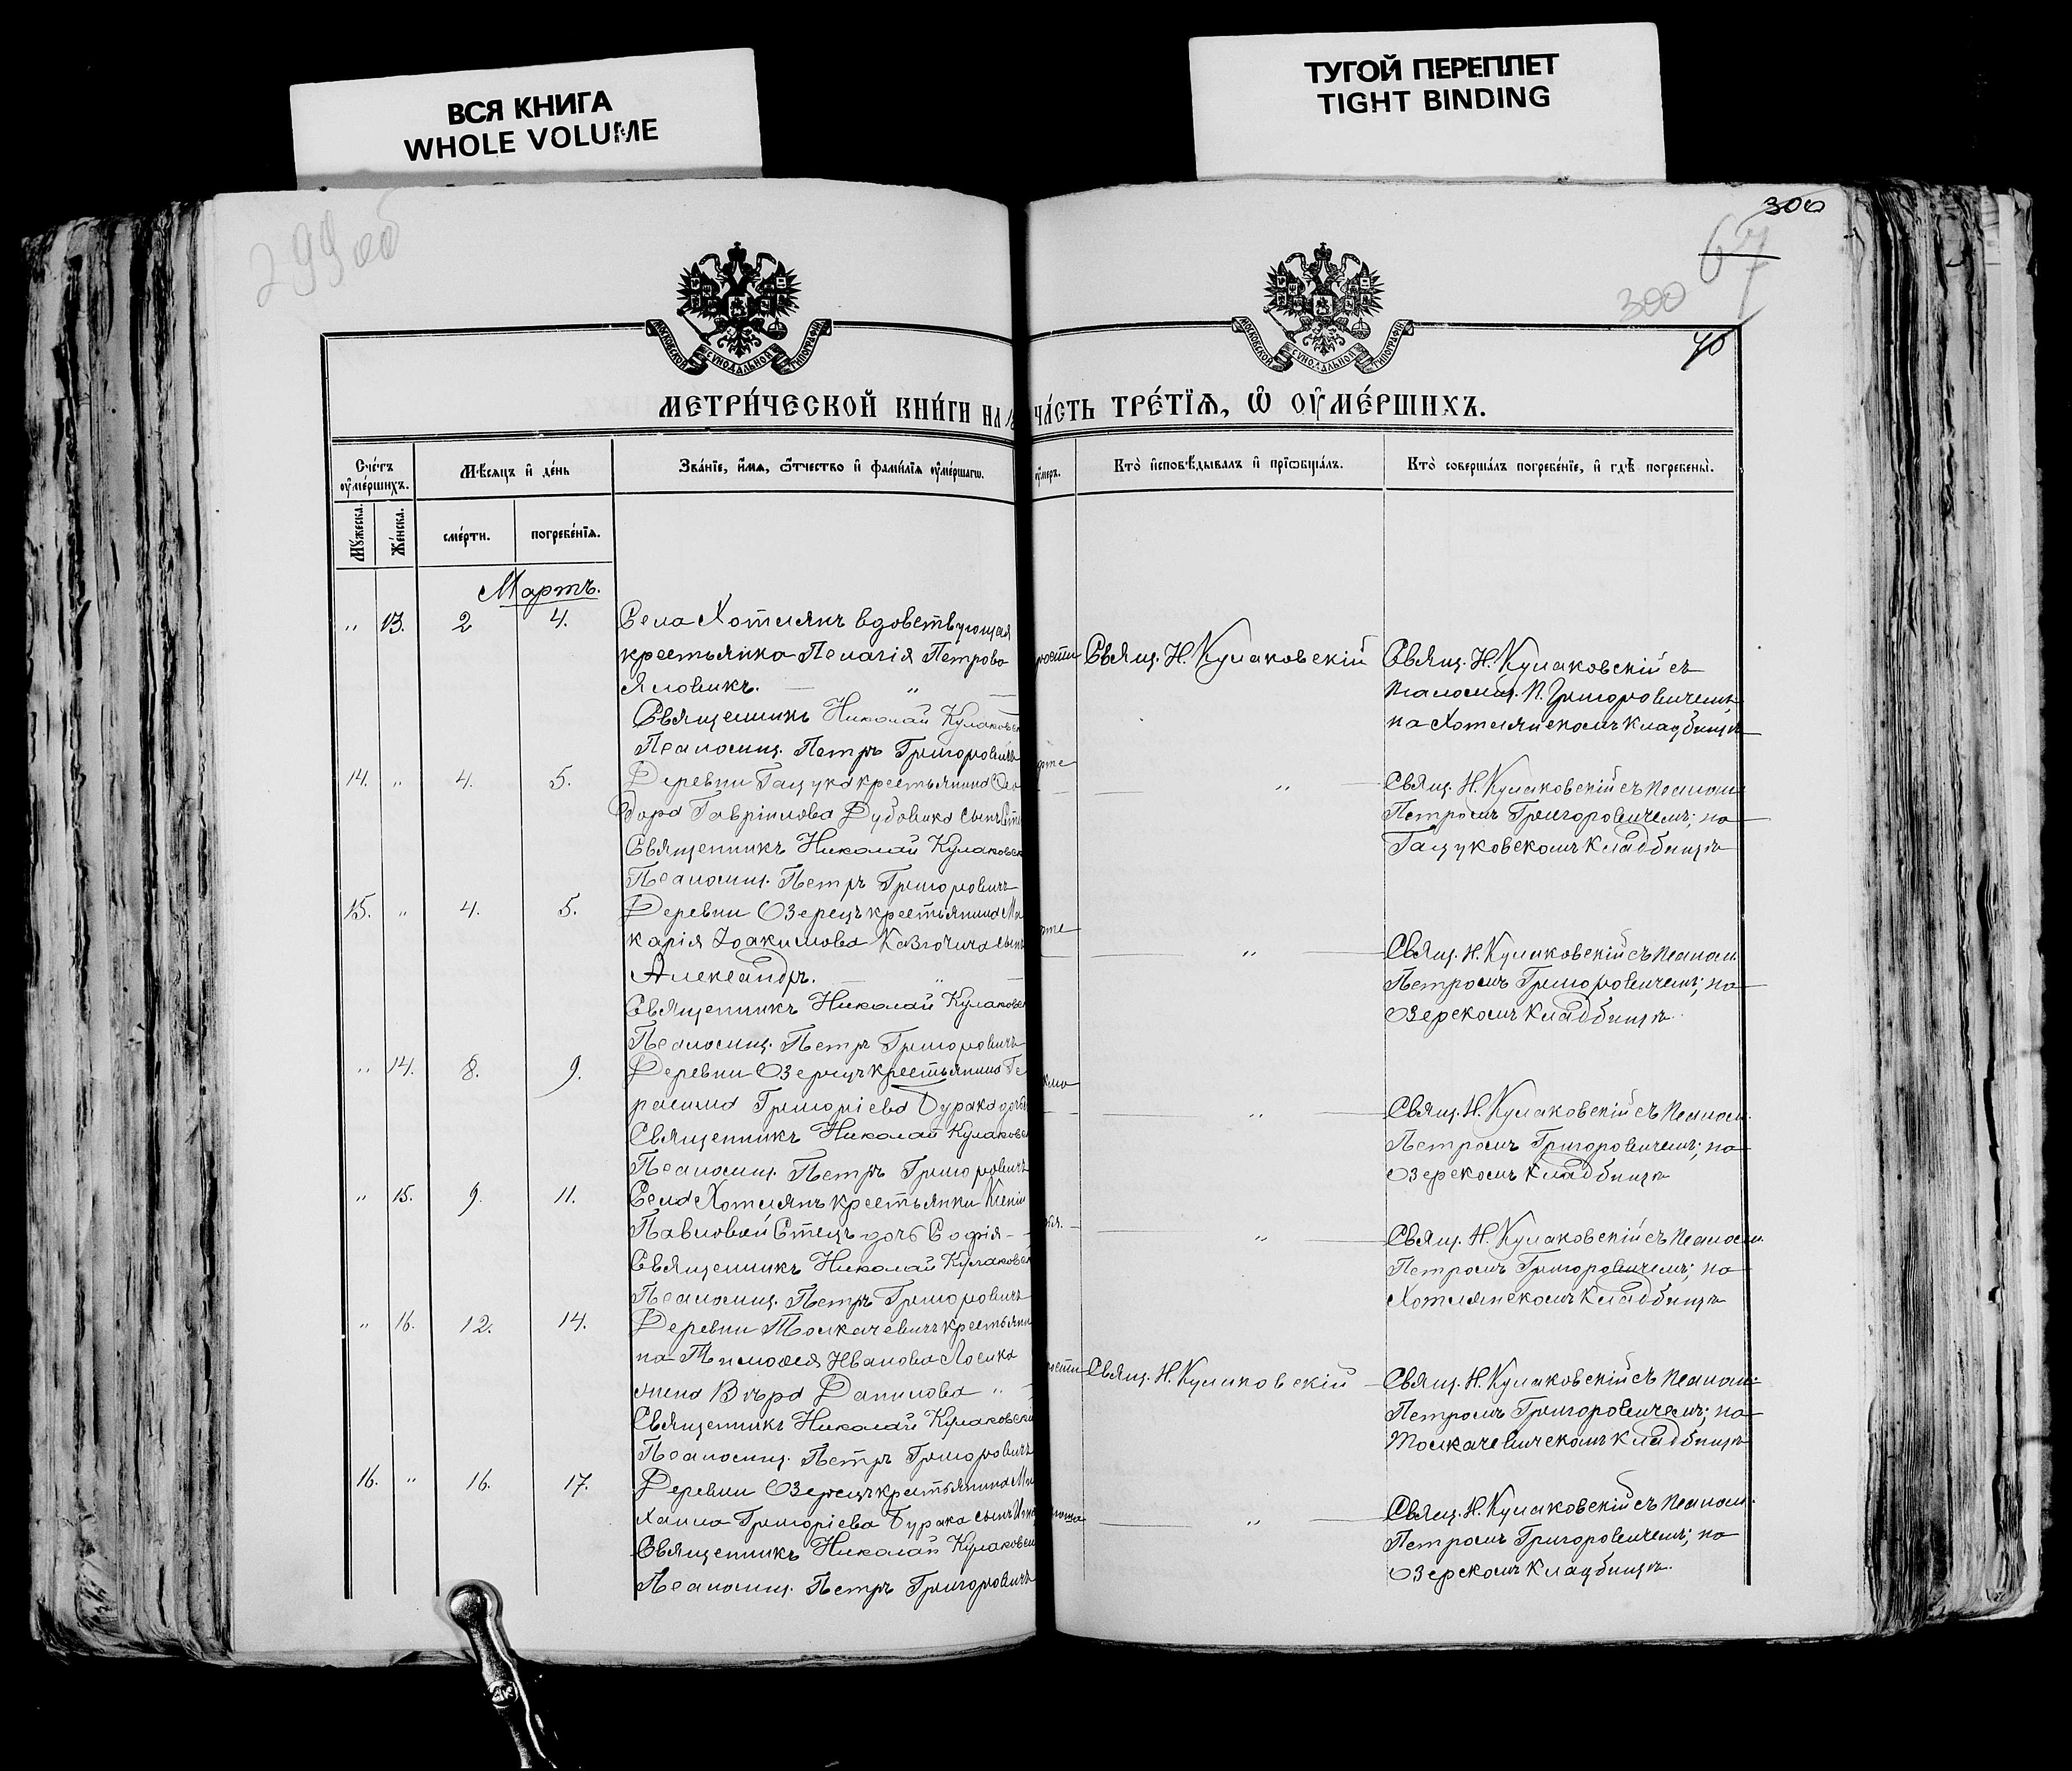 ВСЯ КНИГА
WHOLE VOLUME
ТУГОЙ ПЕРЕПЛЕТ
TIGHT BINDING
299об
300
67
300
40
МОСКОВСКОЙ СУНОДАЛЬНОЙ ТИПОГРАФІИ
МОСКОВСКОЙ СУНОДАЛЬНОЙ ТИПОГРАФІИ
МЕТРИ́ЧЕСКОЙ КНИ́ГИ НА 18
ЧА́СТЬ ТРЕ́ТЇѦ, Ѡ҆ ОУ҆МЕ́РШИХЪ.
Сче́тъ оу҆ме́ршихъ.
Мѣ́сяцъ и҆ де́нь
Зва́нїе, и҆́мя, ѻ҆́тчество и҆ фами́лїя оу҆ме́ршагѡ.
оу҆́меръ.
Кто̀ и҆сповѣ́дывалъ и҆ прїѻбща́лъ.
Кто̀ соверша́лъ погребе́нїе, и҆ гдѣ̀ погребены̀.
Мꙋ́жеска.
Же́нска.
сме́рти.
погребе́нїя.
Мартъ.
" 13. 2 4. Села Хотлянъ вдовствующая
крестьянка Пелагія Петрова
Яловикъ. — "
Священникъ Николай Кулаковск
Псаломщ. Петръ Григоровичъ
рости Свящ. Н. Кулаковскій Свящ. Н. Кулаковскій съ
псаломщ. П. Григоровичемъ
на Хотлянскомъ кладбищѣ
14. " 4. 5. Деревни Гацука крестьянина
дора Гавріилова Дубовика сынъ
Священникъ Николай Кулаковск
Псаломщ. Петръ Григоровичъ
" Свящ. Н. Кулаковскій съ псалом
Петромъ Григоровичемъ; на
Гацуковскомъ кладбищѣ
15. " 4. 5. Деревни Озерецъ крестьянина Ма
карія Іоакимова сынъ
Александръ. "
Священникъ Николай Кулаковск
Псаломщ. Петръ Григоровичъ
" Свящ. Н. Кулаковскій съ псалом
Петромъ Григоровичемъ; на
Озерскомъ кладбищѣ.
" 14. 8. 9. Деревни Озерецъ крестьянина Ге
расима Григоріева Бурака дочь
Священникъ Николай Кулаковск
Псаломщ. Петръ Григоровичъ
" Свящ. Н. Кулаковскій съ псалом.
Петромъ Григоровичемъ; на
Озерскомъ кладбищѣ
" 15. 9. 11. Села Хотлянъ крестьянки Ксеніи
Павловой Стецъ дочь Софія —
Священникъ Николай Кулаковск
Псаломщ. Петръ Григоровичъ
" Свящ. Н. Кулаковскій съ псалом.
Петромъ Григоровичемъ; на
Хотлянскомъ кладбищѣ
" 16. 12. 14. Деревни Толкачевичъ крестьяни
на Тимоѳея Иванова Лосика
жена Вѣра Данилова "
Священникъ Николай Кулаковскі
Псаломщ. Петръ Григоровичъ
рости Свящ. Н. Кулаковскій Свящ. Н. Кулаковскій съ псалом.
Петромъ Григоровичемъ; на
Толкачевичскомъ кладбищѣ
16. " 16. 17. Деревни Озерецъ крестьянина Ми
хаила Григоріева Бурака сынъ
Священникъ Николай Кулаковск
Псаломщ. Петръ Григоровичъ
" Свящ. Н. Кулаковскій съ псалом.
Петромъ Григоровичемъ; на
Озерскомъ кладбищѣ.